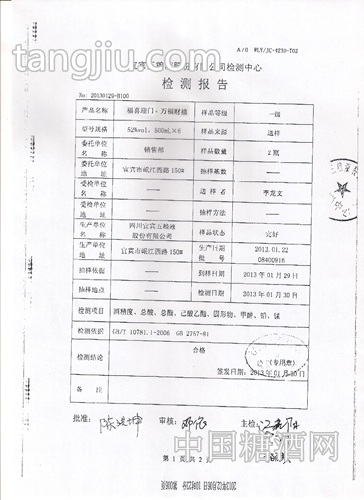 tangjiu.com
A/0 WLY/JC-4230-T02
公司检测中心
检测报告
No: 20130129-B100
产品名称 福喜迎门·万福财禧 样品等级 一级
型号规格 52%vol、500mL×6 样品来源 送样
委托单位名称 销售部 样品数量 2瓶
委托单位地址 宜宾市岷江西路150# 抽样基数 ——
受检单位名称 —— 送样者 李龙文
受检单位地址 —— 抽样方法 ——
生产单位名称 四川宜宾五粮液股份有限公司 样品状态 完好
生产单位地址 宜宾市岷江西路150# 生产日期批号 2013.01.22 08400916
抽样依据 —— 到样日期 2013年01月29日
抽样地点 —— 检测日期 2013年01月30日
检测项目 酒精度、总酸、总酯、己酸乙酯、固形物、甲醇、铅、锰
检测依据 GB/T 10781.1-2006 GB 2757-81
检测结论 合格
(专用章)
签发日期:2013年01月30日
备注 ——
批准: 审核: 主检:
第1页共2页
中国糖酒网